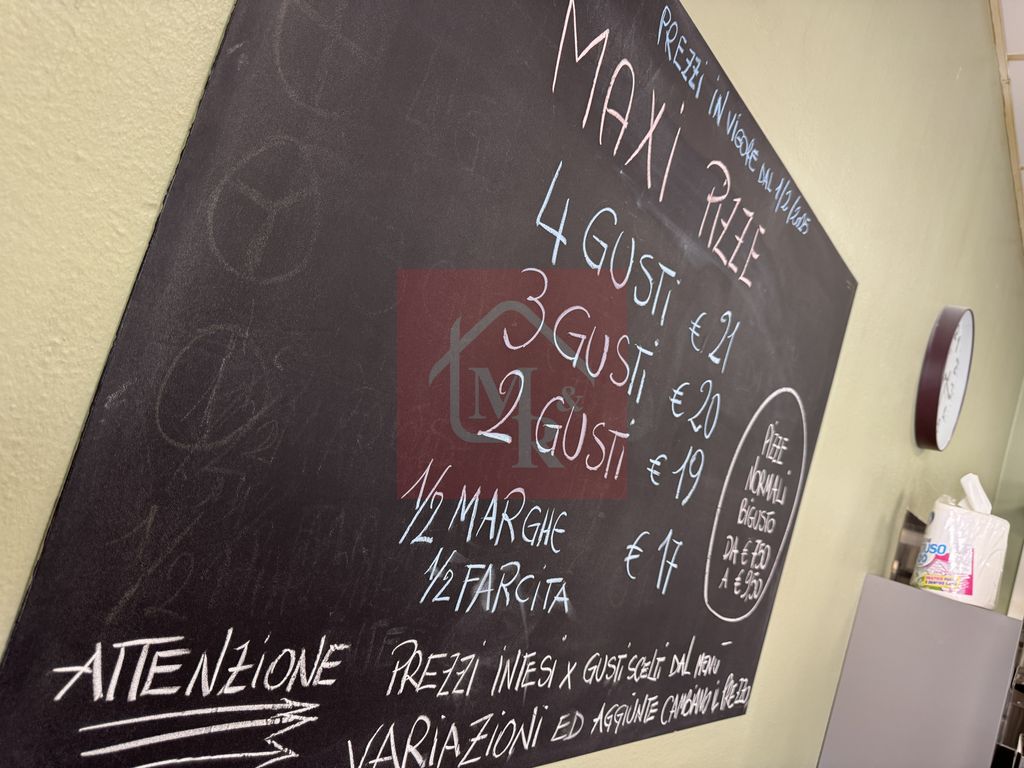 PREZZI IN VIGORE DAL 1/2/2025
MAXI PIZZE
4 GUSTI € 21
3 GUSTI € 20
2 GUSTI € 19
1/2 MARGHE
1/2 FARCITA € 17
PIZZE
NORMALI
BIGUSTO
DA € 7,50
A € 9,50
ATTENZIONE PREZZI INTESI X GUSTI SCELTI DAL MENÙ
VARIAZIONI ED AGGIUNTE CAMBIANO IL PREZZO
M & R